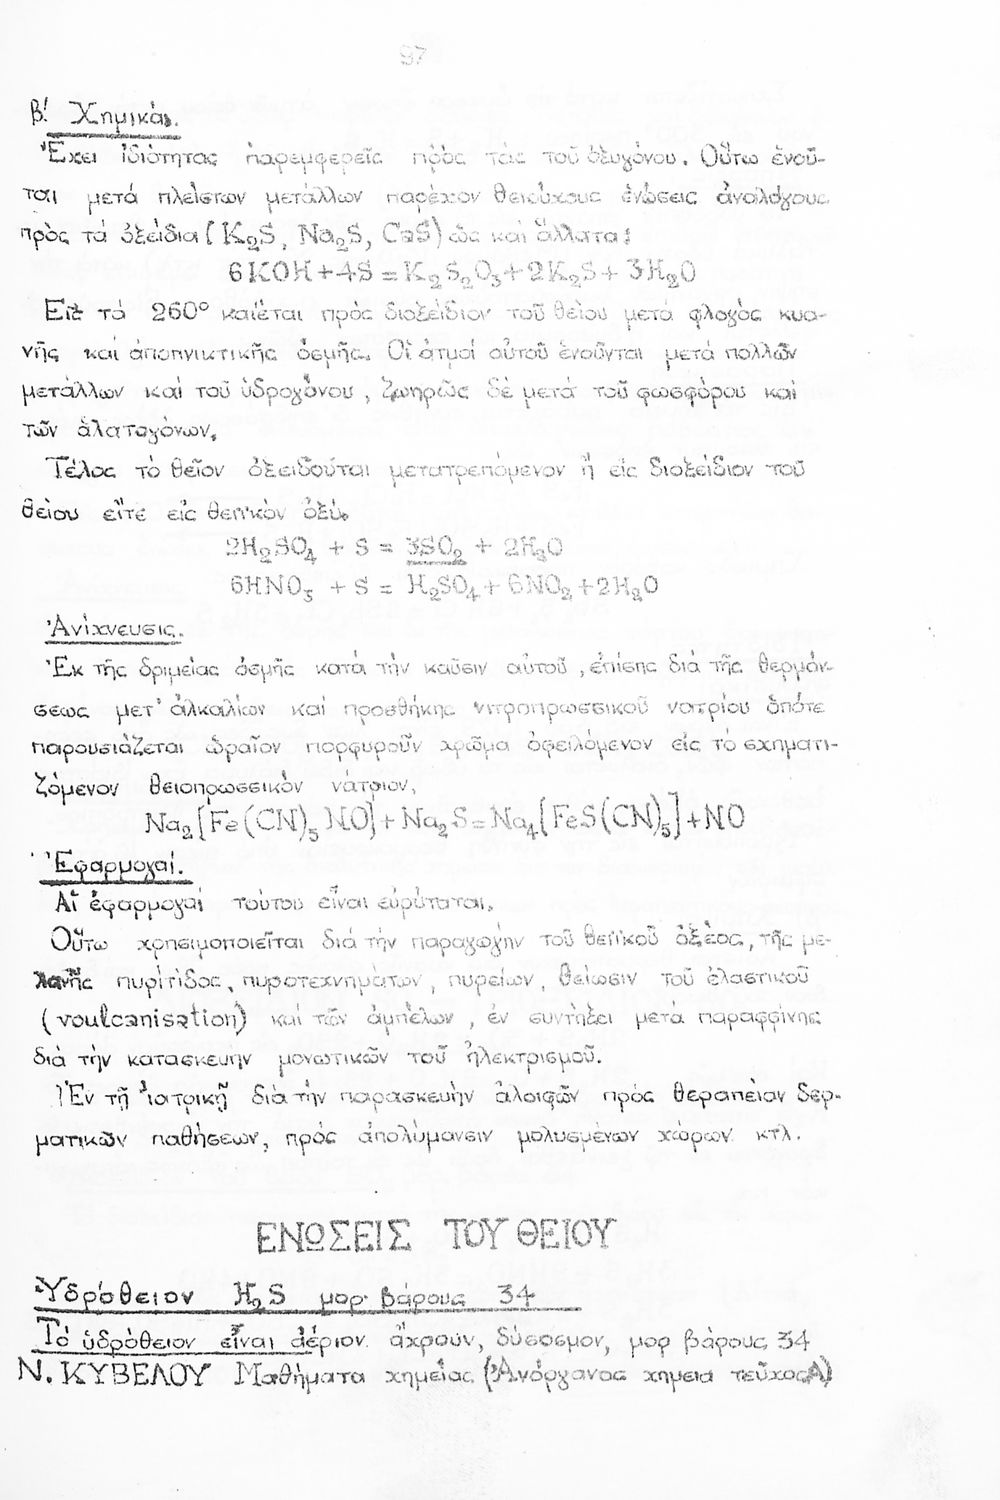 97
β'. Χημικαί.
Ἔχει ἰδιότητας παρεμφερεῖς πρὸς τάς τοῦ ὀξυγόνου. Οὕτω ἑνοῦ-
ται μετά πλείστων μετάλλων παρέχον θειούχους ἑνώσεις ἀναλόγους
πρὸς τά ὀξείδια ( K₂S, Na₂S, CaS) ὡς καί ἅλατα:
6KOH+4S=K₂S₂O₃+2K₂S+3H₂O
Εἰς τά 260° καίεται πρὸς διοξείδιον τοῦ θείου μετά φλογὸς κυα-
νῆς καί ἀποπνικτικῆς ὀσμῆς. Οἱ ἀτμοί αὐτοῦ ἑνοῦνται μετά πολλῶν
μετάλλων καί τοῦ ὑδρογόνου, ζωηρῶς δέ μετά τοῦ φωσφόρου καί
τῶν ἁλατογόνων.
Τέλος τὸ θεῖον ὀξειδοῦται μετατρεπόμενον ἤ εἰς διοξείδιον τοῦ
θείου εἴτε εἰς θειικὸν ὀξύ.
2H₂SO₄ + S = 3SO₂ + 2H₂O
6HNO₃ + S = H₂SO₄+6NO₂+2H₂O
Ἀνίχνευσις.
Ἐκ τῆς δριμείας ὀσμῆς κατά τὴν καῦσιν αὐτοῦ, ἐπίσης διά τῆς θερμάν-
σεως μετ' ἀλκαλίων καί προσθήκης νιτροπρωσσικοῦ νατρίου ὁπότε
παρουσιάζεται ὡραῖον πορφυροῦν χρῶμα ὀφειλόμενον εἰς τὸ σχηματι-
ζόμενον θειοπρωσσικόν νάτριον.
Na₂[Fe(CN)₅NO]+Na₂S=Na₄[FeS(CN)₅]+NO
Ἐφαρμογαί.
Αἱ ἐφαρμογαί τούτου εἶναι εὐρύταται.
Οὕτω χρησιμοποιεῖται διά τὴν παραγωγὴν τοῦ θειικοῦ ὀξέος, τῆς με-
λανῆς πυρίτιδος, πυροτεχνημάτων, πυρείων, θείωσιν τοῦ ἐλαστικοῦ
(voulcanisation) καί τῶν ἀμπέλων, ἐν συντήξει μετά παραφφίνης
διά τὴν κατασκευὴν μονωτικῶν τοῦ ἠλεκτρισμοῦ.
Ἐν τῇ ἰατρικῇ διά τὴν παρασκευὴν ἀλοιφῶν πρὸς θεραπείαν δερ-
ματικῶν παθήσεων, πρὸς ἀπολύμανσιν μολυσμένων χώρων κτλ.
ΕΝΩΣΕΙΣ ΤΟΥ ΘΕΙΟΥ
Ὑδρόθειον H₂S μορ. βάρους 34
Τό ὑδρόθειον εἶναι ἀέριον ἄχρουν, δύσοσμον, μορ βάρους 34
Ν. ΚΥΒΕΛΟΥ Μαθήματα χημείας (Ἀνόργανος χημεια τεῦχος Α)